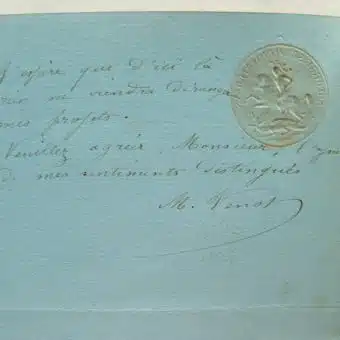 J'espère que d'ici là
rien ne viendra déranger
mes projets.
Veuillez agréer, Monsieur, l'
de mes sentiments distingués
M. Venot